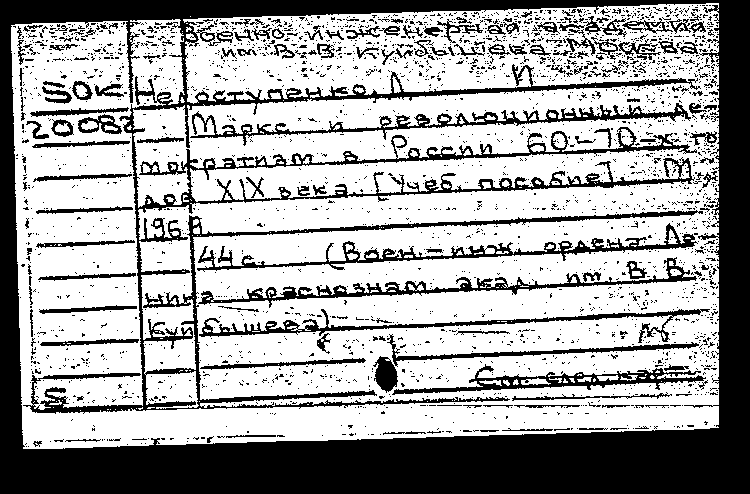 Военно-инженерная академия
им В. В. Куйбышева Москва
SOK Недоступенко, Л. И
20082 Маркс и революционный де-
мократизм в России 60-70-х го
дов XIX века. [Учеб. пособие]. М.,
1969.
44 с. (Воен.-инж. ордена Ле-
нина краснознам. акад. им. В. В.
Куйбышева)
См. след. карт.
S